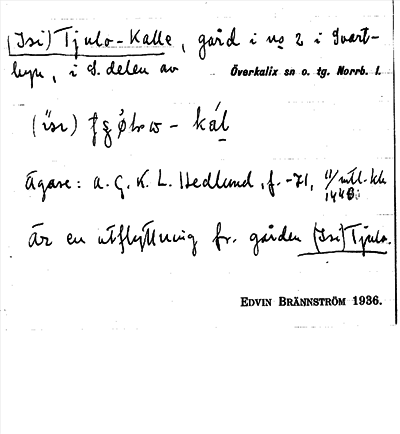 (Isi) Tjulo-Kalle, gård i ns 2 i Svart-
byn, i S. delen av Överkalix sn o. tg. Norrb. l.
Ägare: A. G. K. L. Hedlund, f. -71,
Är en utflyttning fr. gården (Isi) Tjulo.
EDVIN BRÄNNSTRÖM 1936.